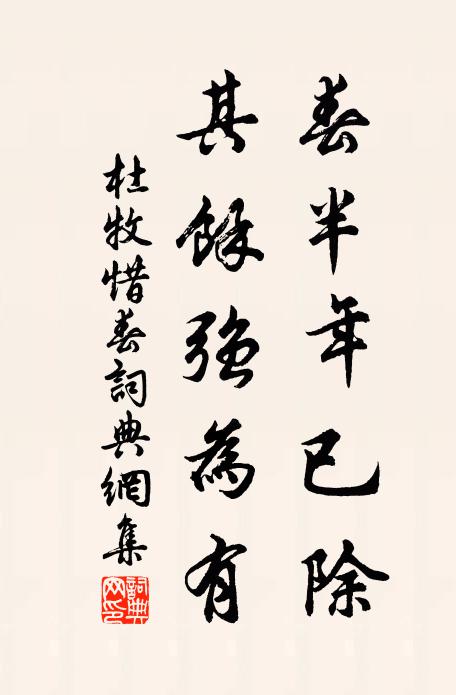 春半年已除
其餘強為有
杜牧惜春詞典網集
詞典網印